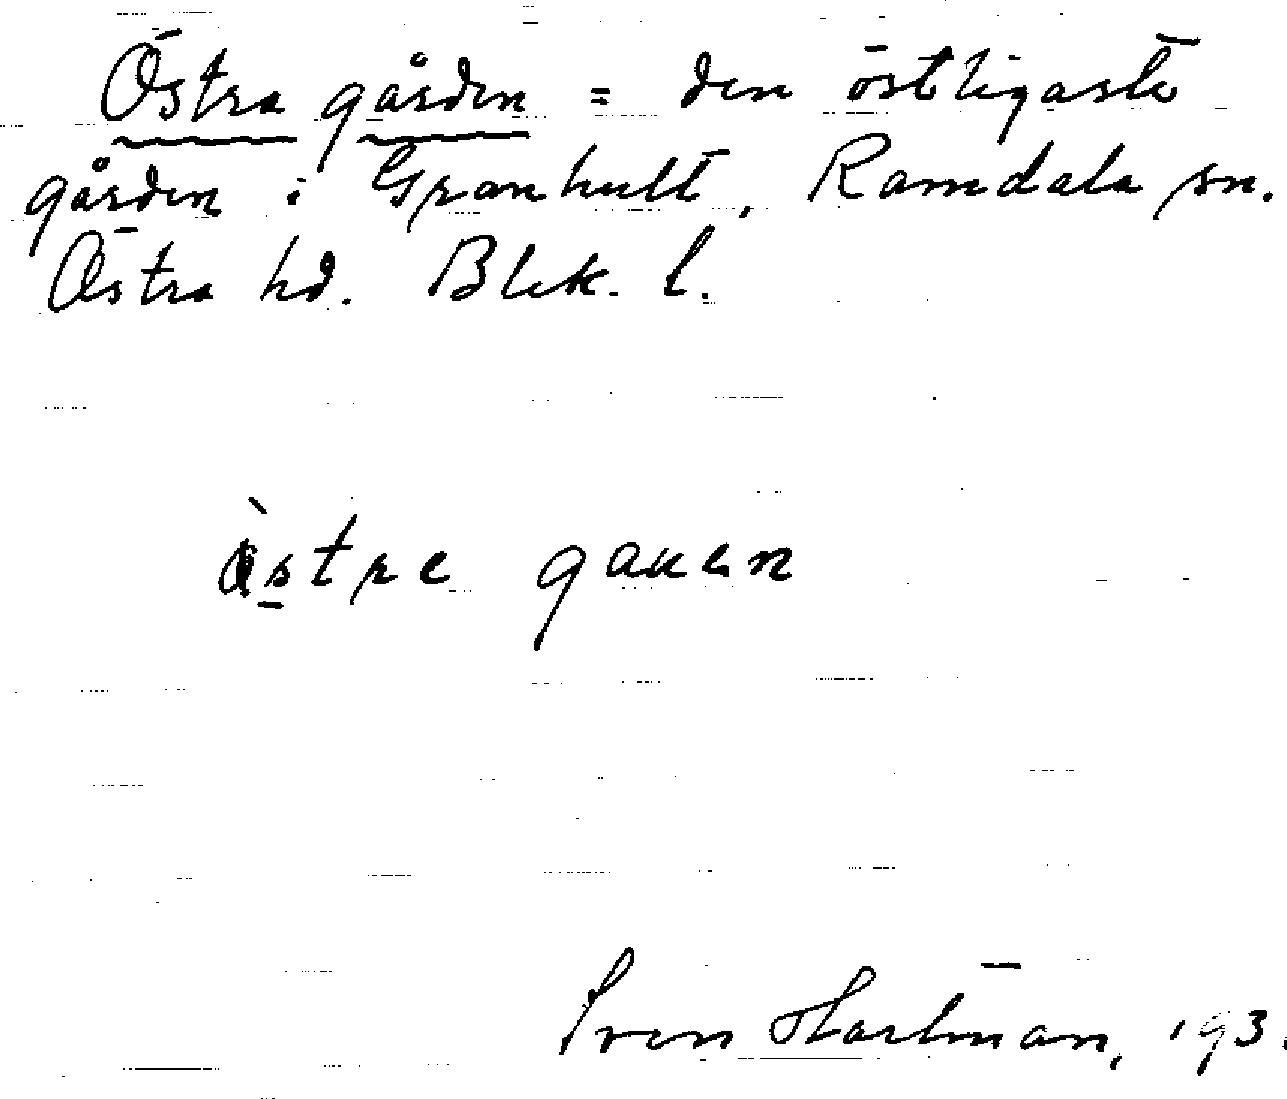 Östra gården = den östligaste
gården i Granhult, Ramdala sn.
Östra hd. Blek. l.
gauen
Sven Hartman, 193